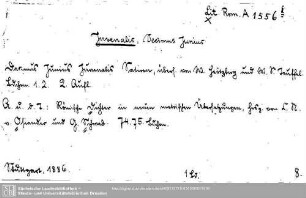 Lit. Rom. A 1556 f
Juvenalis, Decimus Junius
Decimus Junius Juvenalis Satiren, übers. von W. Hertzberg und W. S. Teuffel
Bdchen 1. 2. 2. Aufl.
A. u. d. T.: Römische Dichter in neuen metrischen Übersetzungen, hrsg. von C. N.
v. Osiander und G. Schwab. 74. 75. Bdchen.
Stuttgart, 1886. 8.
Sächsische Landesbibliothek -
Staats- und Universitätsbibliothek Dresden